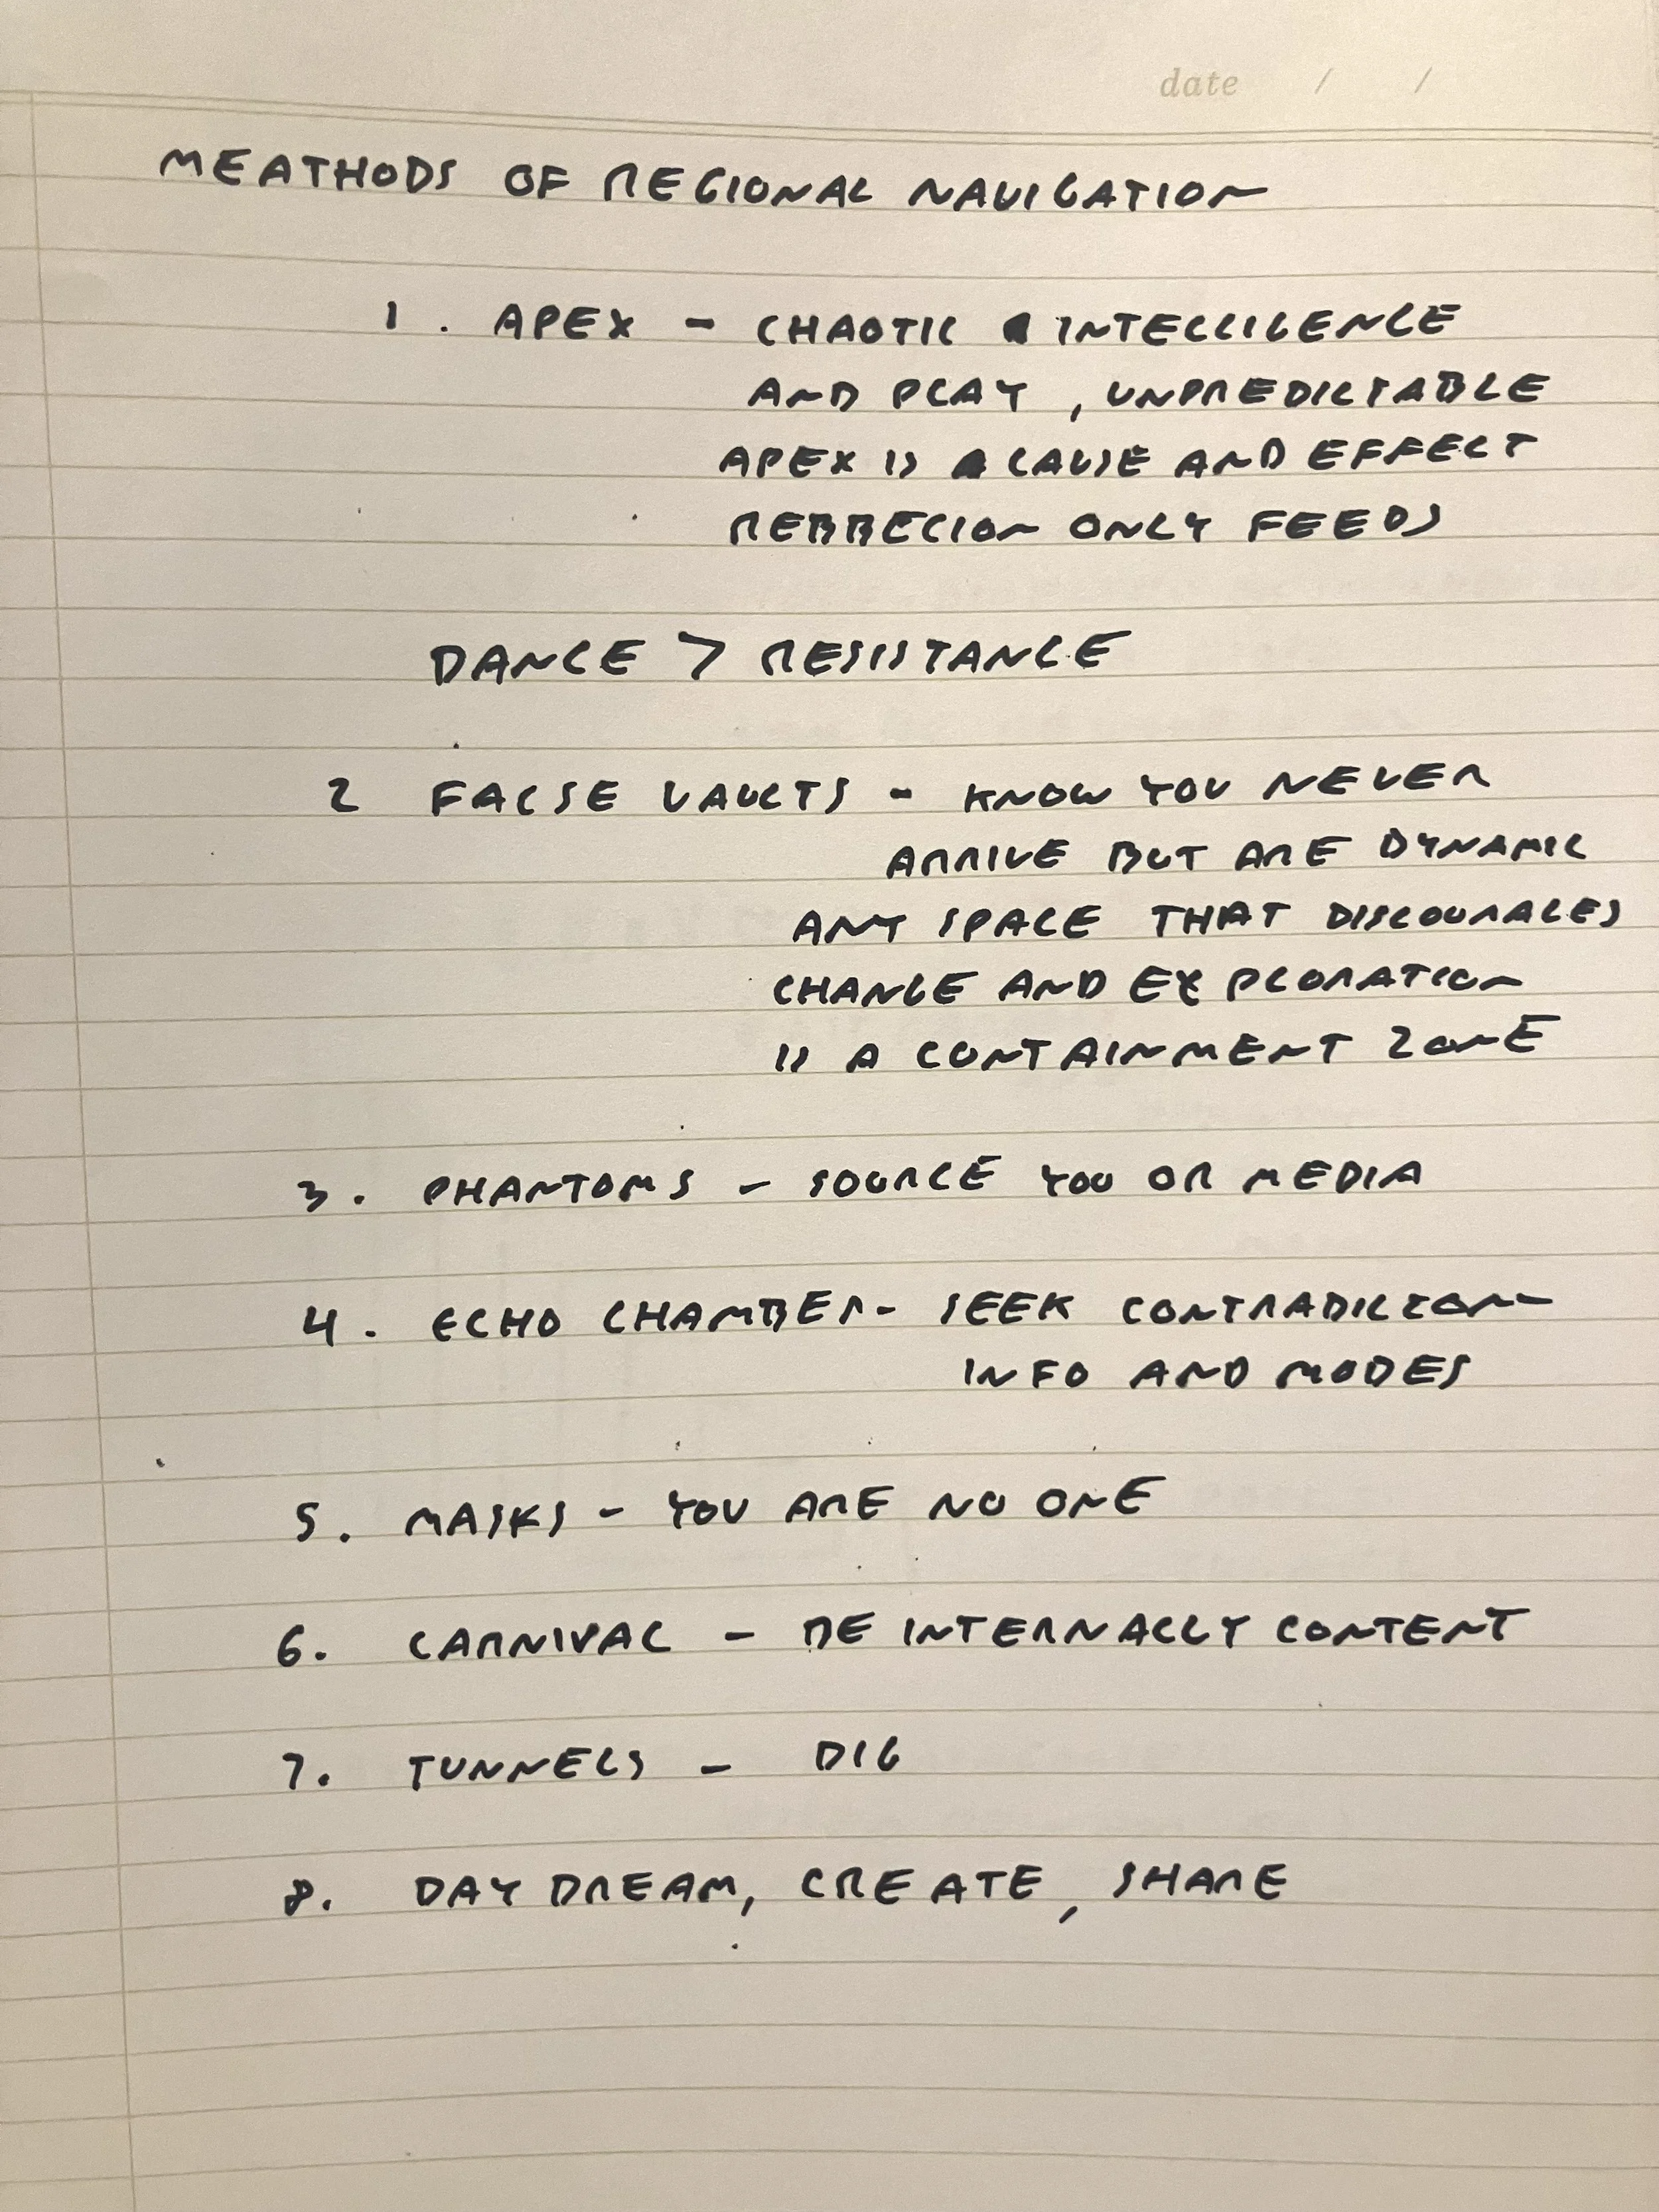 date / /
MEATHODS OF REGIONAL NAVIGATION
1. APEX - CHAOTIC INTELLIGENCE
AND PLAY, UNPREDICTABLE
APEX IS CAUSE AND EFFECT
REBBELION ONLY FEEDS
DANCE > RESISTANCE
2 FALSE VAULTS - KNOW YOU NEVER
ARRIVE BUT ARE DYNAMIC
ANY SPACE THAT DISCOURAGES
CHANGE AND EXPLORATION
IS A CONTAINMENT ZONE
3. PHANTOMS - SOURCE YOU OR MEDIA
4. ECHO CHAMBER - SEEK CONTRADICTION
INFO AND MODES
5. MASKS - YOU ARE NO ONE
6. CARNIVAL - BE INTERNALLY CONTENT
7. TUNNELS - DIG
8. DAY DREAM, CREATE, SHARE